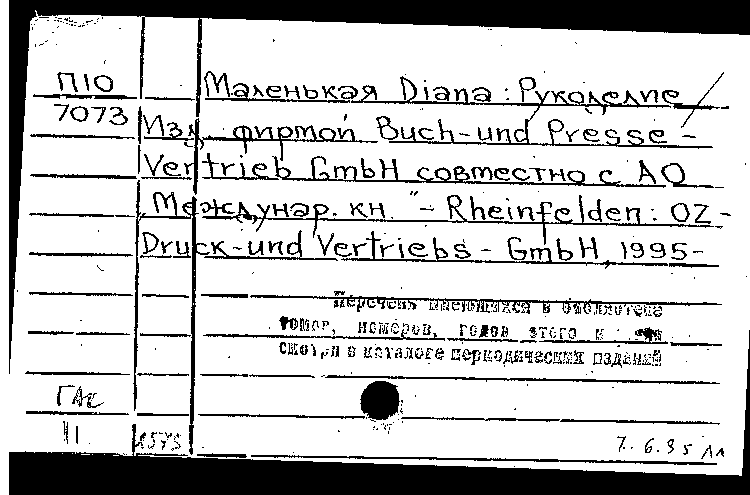 П10 Маленькая Diana : Рукоделие
7073 Изд. фирмой Buch-und Presse-
Vertrieb GmbH совместно с АО
„Междунар. кн.“ - Rheinfelden: OZ-
Druck-und Vertriebs-GmbH, 1995-
Перечень имеющихся в библиотеке
томов, номеров, годов этого и
смотри в каталоге периодических изданий
II 1573 7.6.95